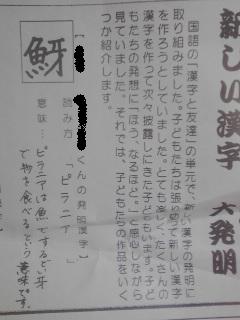 新しい漢字 大発明
国語の「漢字と友達」の単元で、新しい漢字の発明に
取り組みました。子どもたちは張り切って新しい漢字
を作ろうとしていました。とても楽しく、たくさんの
漢字を作って次々披露しにきた子どももいます。子ど
もたちの発想に「ほう、なるほど。」と感心しながら
見ていました。それでは、子どもたちの作品をいく
つか紹介します。
【 くんの発明漢字】
読み方 「ピラニア」
意味…ピラニアは魚でするどい牙
で物を食べるという意味です。